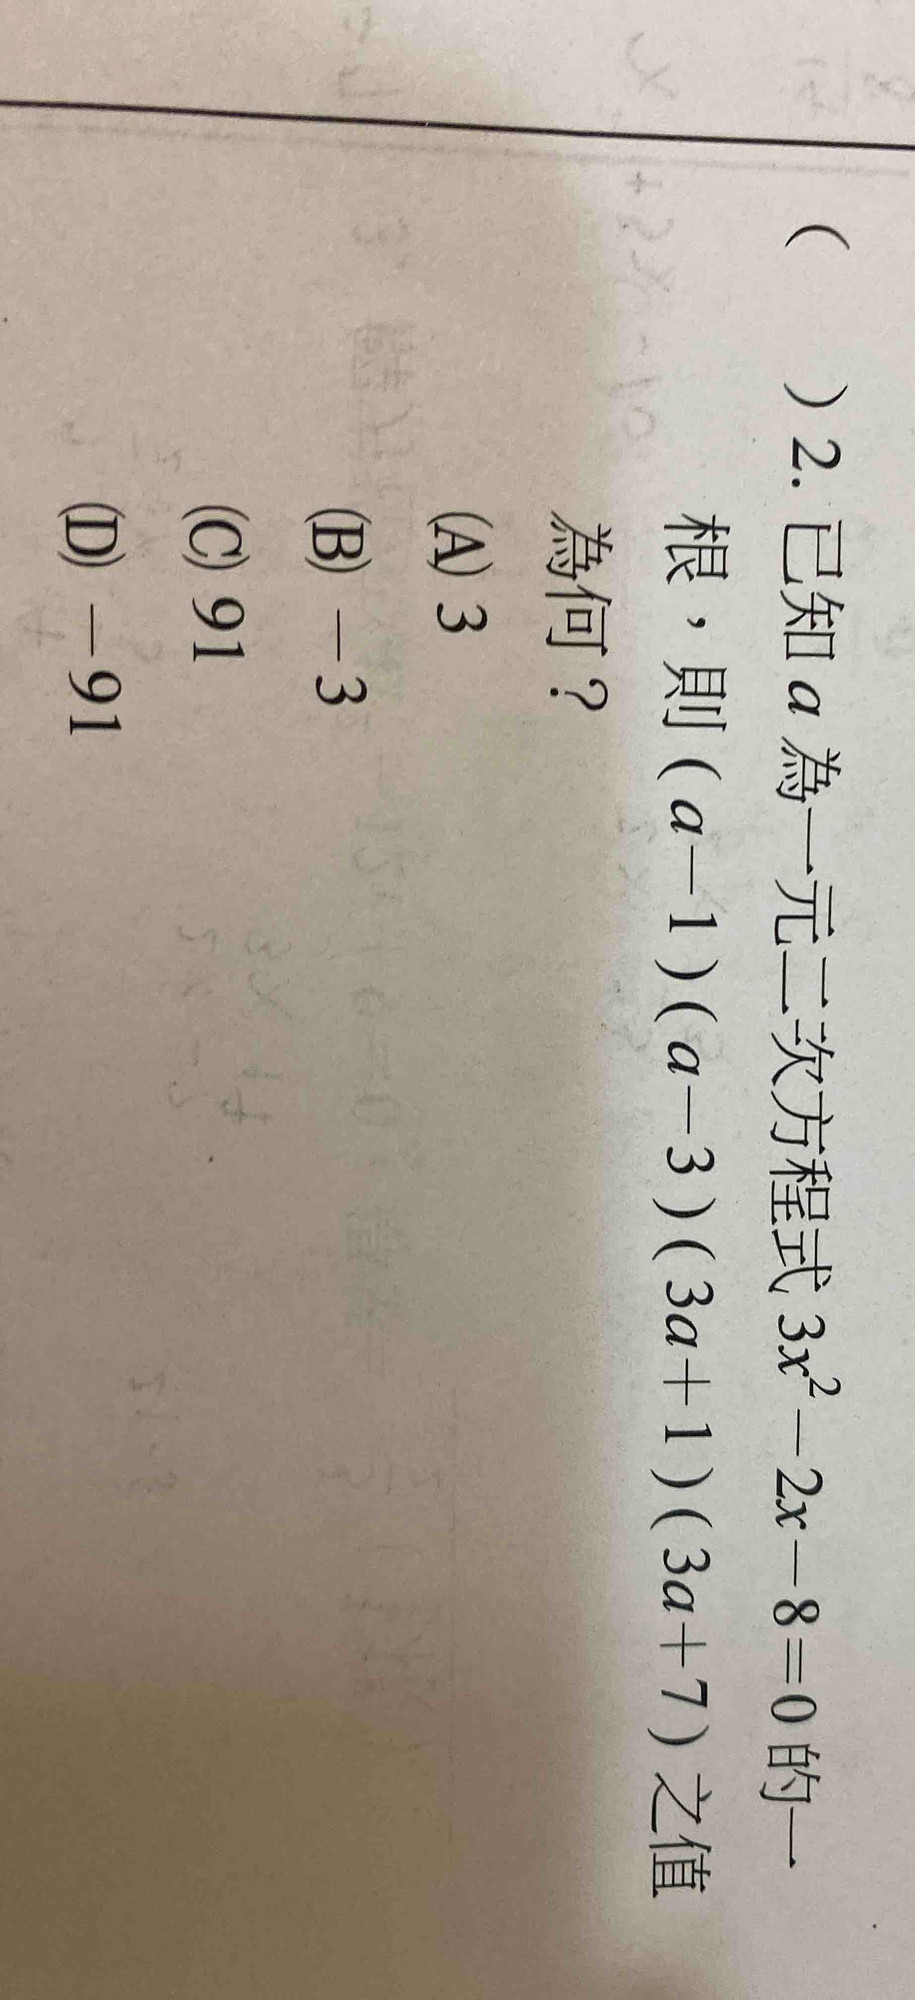 (　　) 2. 已知 a 為一元二次方程式 3x²－2x－8＝0 的一
根，則 (a－1)(a－3)(3a＋1)(3a＋7) 之值
為何？
(A) 3
(B) －3
(C) 91
(D) －91